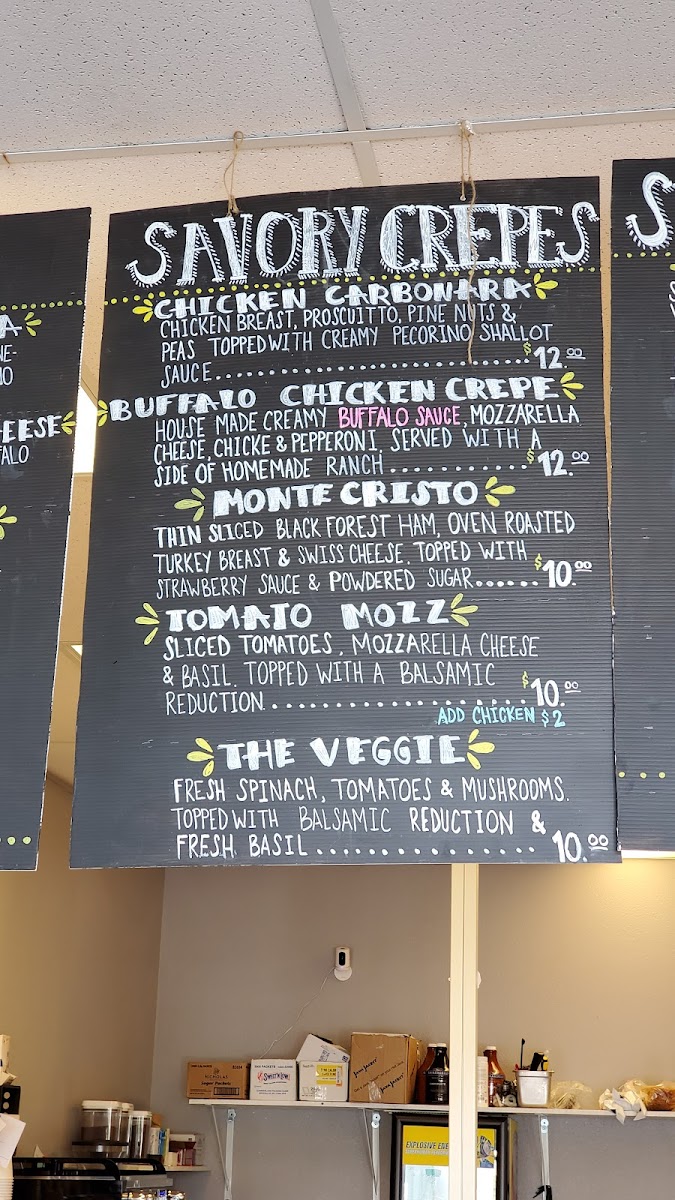 SAVORY CREPES
CHICKEN CARBONARA
CHICKEN BREAST, PROSCUITTO, PINE NUTS &
PEAS TOPPED WITH CREAMY PECORINO SHALLOT
SAUCE................................$12.00
BUFFALO CHICKEN CREPE
HOUSE MADE CREAMY BUFFALO SAUCE, MOZZARELLA
CHEESE, CHICKE & PEPPERONI SERVED WITH A
SIDE OF HOMEMADE RANCH............$12.00
MONTE CRISTO
THIN SLICED BLACK FOREST HAM, OVEN ROASTED
TURKEY BREAST & SWISS CHEESE. TOPPED WITH
STRAWBERRY SAUCE & POWDERED SUGAR......$10.00
TOMATO MOZZ
SLICED TOMATOES, MOZZARELLA CHEESE
& BASIL. TOPPED WITH A BALSAMIC
REDUCTION....................$10.00
ADD CHICKEN $2
THE VEGGIE
FRESH SPINACH, TOMATOES & MUSHROOMS.
TOPPED WITH BALSAMIC REDUCTION &
FRESH BASIL.................10.00
A
NE-
NO
EESE
FALO
S
Sugar Packets
SWEET'N LOW
EXPLOSIVE ENE